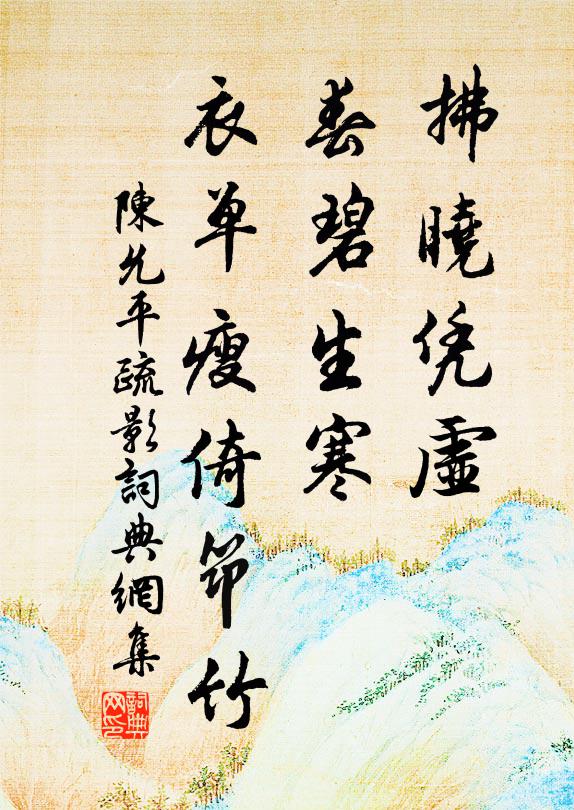 拂曉凭虛
春碧生寒
衣單瘦倚筇竹
陳允平疏影詞典網集
詞典網印